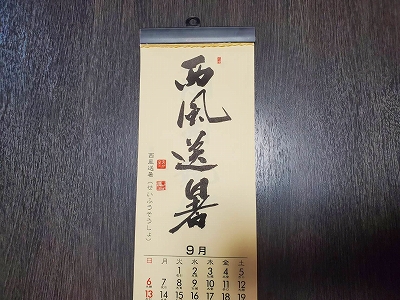 西風送暑
西風送暑（せいふうそうしょ）
9月
日 月 火 水 木 金 土
1 2 3 4 5
6 7 8 9 10 11 12
13 14 15 16 17 18 19